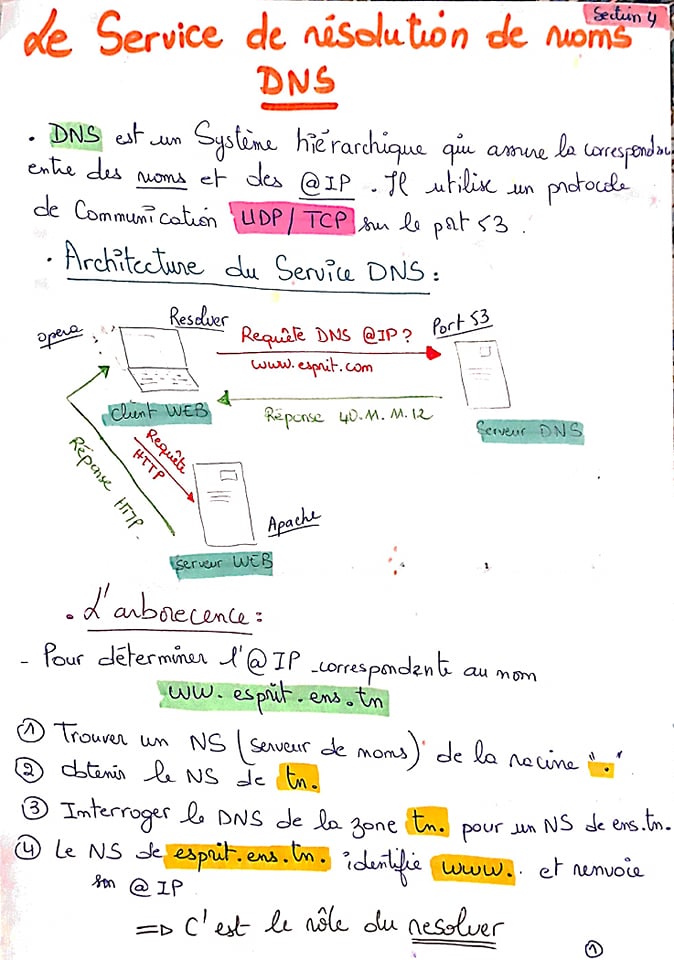 Section 4
Le Service de résolution de noms
DNS
• DNS est un Système hiérarchique qui assure la correspondan
entre des noms et des @IP. Il utilise un protocole
de Communication UDP/TCP sur le port 53.
• Architecture du Service DNS :
opera
Resolver
Requête DNS @IP?
Port 53
www.esprit.com
Client WEB
Réponse 40.11.11.12
Serveur DNS
Requête
HTTP
Réponse HTTP
Apache
Serveur WEB
• L'arborecence :
- Pour déterminer l'@IP correspondante au nom
ww.esprit.ens.tn
① Trouver un NS (serveur de noms) de la racine "."
② obtenir le NS de tn.
③ Interroger le DNS de la zone tn. pour un NS de ens.tn.
④ Le NS de esprit.ens.tn. identifie www. et renvoie
son @IP
=> C'est le rôle du resolver
①